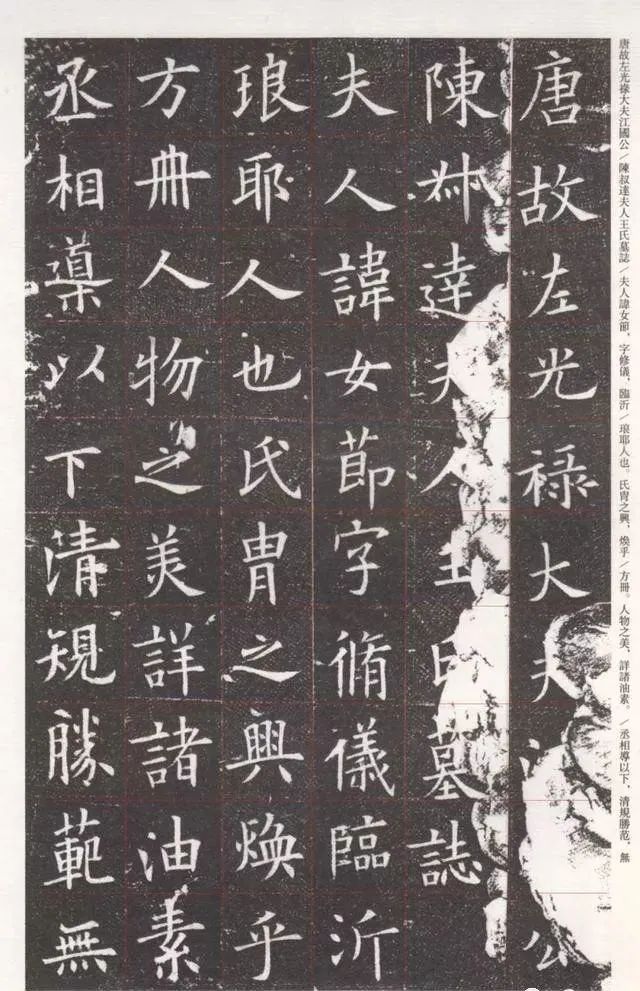 唐故左光禄大夫江國公／陳叔達夫人王氏墓誌／夫人諱女節，字修儀，臨沂／琅耶人也。氏胄之興，煥乎／方冊。人物之美，詳諸油素。／丞相導以下，清規勝范，無
唐故左光禄大夫公
陳叔達夫人王氏墓誌
夫人諱女節字脩儀臨沂
琅耶人也氏胄之興煥乎
方冊人物之美詳諸油素
丞相導以下清規勝範無